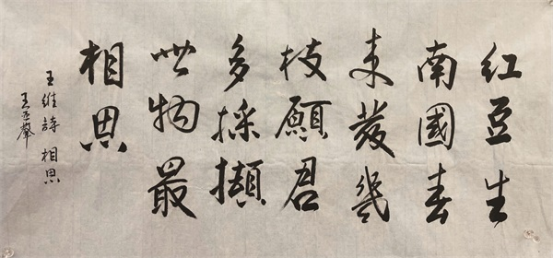 红豆生
南國春
来發幾
枝願君
多採擷
此物最
相思
王维詩 相思
王